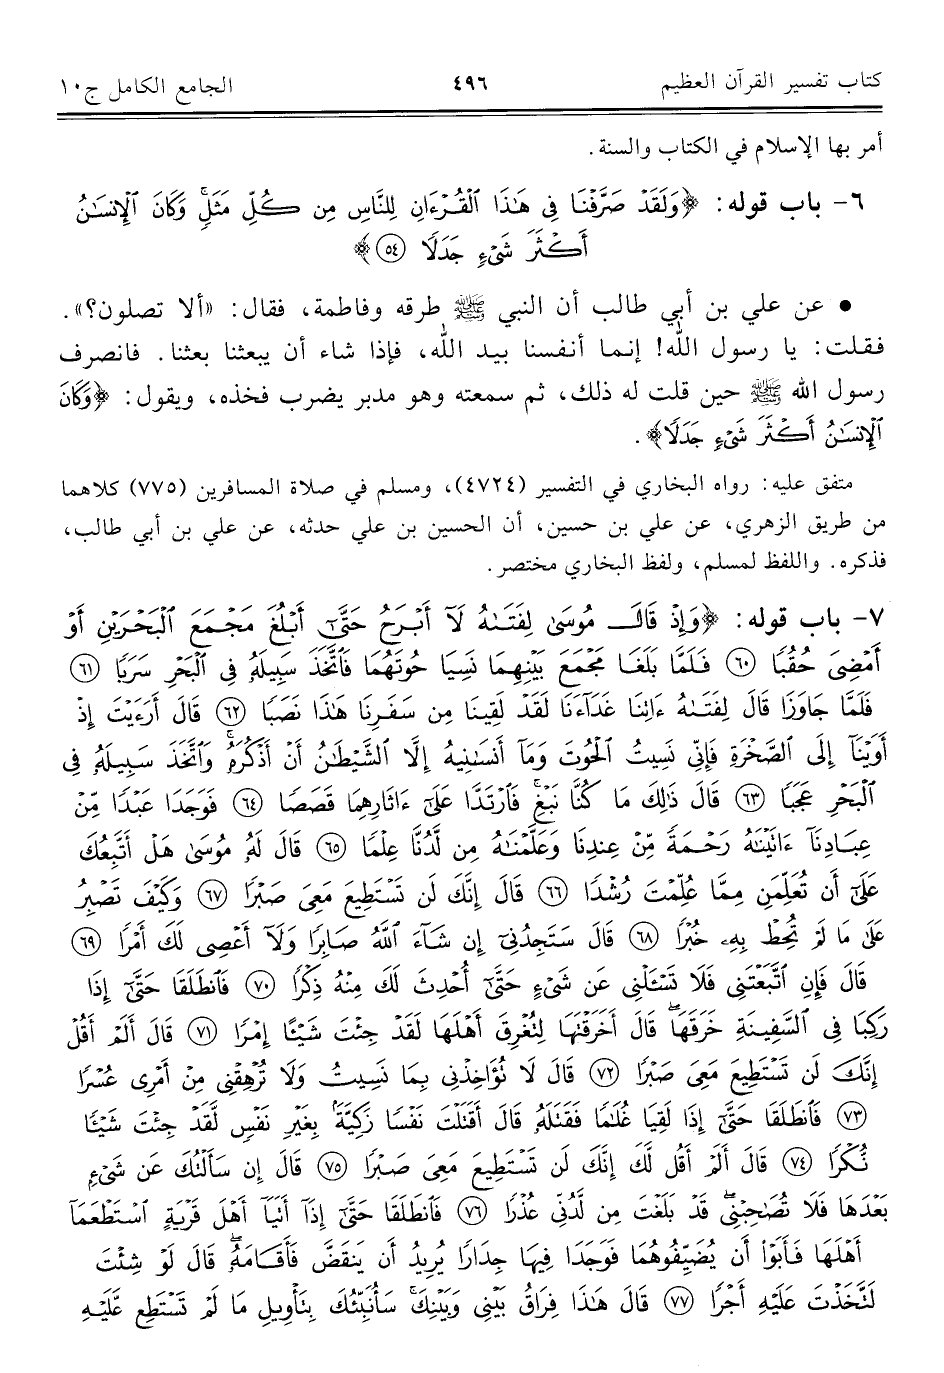 كتاب تفسير القرآن العظيم ٤٩٦ الجامع الكامل ج١٠
أمر بها الإسلام في الكتاب والسنة.
٦- باب قوله: ﴿وَلَقَدْ صَرَّفْنَا فِي هَٰذَا ٱلْقُرْءَانِ لِلنَّاسِ مِن كُلِّ مَثَلٍۚ وَكَانَ ٱلْإِنسَٰنُ
أَكْثَرَ شَىْءٍ جَدَلًا ٥٤﴾
• عن علي بن أبي طالب أن النبي ﷺ طرقه وفاطمة، فقال: «ألا تصلون؟».
فقلت: يا رسول الله! إنما أنفسنا بيد الله، فإذا شاء أن يبعثنا بعثنا. فانصرف
رسول الله ﷺ حين قلت له ذلك، ثم سمعته وهو مدبر يضرب فخذه، ويقول: ﴿وَكَانَ
ٱلْإِنسَٰنُ أَكْثَرَ شَىْءٍ جَدَلًا﴾.
متفق عليه: رواه البخاري في التفسير (٤٧٢٤)، ومسلم في صلاة المسافرين (٧٧٥) كلاهما
من طريق الزهري، عن علي بن حسين، أن الحسين بن علي حدثه، عن علي بن أبي طالب،
فذكره. واللفظ لمسلم، ولفظ البخاري مختصر.
٧- باب قوله: ﴿وَإِذْ قَالَ مُوسَىٰ لِفَتَىٰهُ لَآ أَبْرَحُ حَتَّىٰٓ أَبْلُغَ مَجْمَعَ ٱلْبَحْرَيْنِ أَوْ
أَمْضِىَ حُقُبًا ٦٠ فَلَمَّا بَلَغَا مَجْمَعَ بَيْنِهِمَا نَسِيَا حُوتَهُمَا فَٱتَّخَذَ سَبِيلَهُۥ فِى ٱلْبَحْرِ سَرَبًا ٦١
فَلَمَّا جَاوَزَا قَالَ لِفَتَىٰهُ ءَاتِنَا غَدَآءَنَا لَقَدْ لَقِينَا مِن سَفَرِنَا هَٰذَا نَصَبًا ٦٢ قَالَ أَرَءَيْتَ إِذْ
أَوَيْنَآ إِلَى ٱلصَّخْرَةِ فَإِنِّى نَسِيتُ ٱلْحُوتَ وَمَآ أَنسَىٰنِيهُ إِلَّا ٱلشَّيْطَٰنُ أَنْ أَذْكُرَهُۥۚ وَٱتَّخَذَ سَبِيلَهُۥ فِى
ٱلْبَحْرِ عَجَبًا ٦٣ قَالَ ذَٰلِكَ مَا كُنَّا نَبْغِۚ فَٱرْتَدَّا عَلَىٰٓ ءَاثَارِهِمَا قَصَصًا ٦٤ فَوَجَدَا عَبْدًا مِّنْ
عِبَادِنَآ ءَاتَيْنَٰهُ رَحْمَةً مِّنْ عِندِنَا وَعَلَّمْنَٰهُ مِن لَّدُنَّا عِلْمًا ٦٥ قَالَ لَهُۥ مُوسَىٰ هَلْ أَتَّبِعُكَ
عَلَىٰٓ أَن تُعَلِّمَنِ مِمَّا عُلِّمْتَ رُشْدًا ٦٦ قَالَ إِنَّكَ لَن تَسْتَطِيعَ مَعِىَ صَبْرًا ٦٧ وَكَيْفَ تَصْبِرُ
عَلَىٰ مَا لَمْ تُحِطْ بِهِۦ خُبْرًا ٦٨ قَالَ سَتَجِدُنِىٓ إِن شَآءَ ٱللَّهُ صَابِرًا وَلَآ أَعْصِى لَكَ أَمْرًا ٦٩
قَالَ فَإِنِ ٱتَّبَعْتَنِى فَلَا تَسْـَٔلْنِى عَن شَىْءٍ حَتَّىٰٓ أُحْدِثَ لَكَ مِنْهُ ذِكْرًا ٧٠ فَٱنطَلَقَا حَتَّىٰٓ إِذَا
رَكِبَا فِى ٱلسَّفِينَةِ خَرَقَهَاۖ قَالَ أَخَرَقْتَهَا لِتُغْرِقَ أَهْلَهَا لَقَدْ جِئْتَ شَيْـًٔا إِمْرًا ٧١ قَالَ أَلَمْ أَقُلْ
إِنَّكَ لَن تَسْتَطِيعَ مَعِىَ صَبْرًا ٧٢ قَالَ لَا تُؤَاخِذْنِى بِمَا نَسِيتُ وَلَا تُرْهِقْنِى مِنْ أَمْرِى عُسْرًا
٧٣ فَٱنطَلَقَا حَتَّىٰٓ إِذَا لَقِيَا غُلَٰمًا فَقَتَلَهُۥ قَالَ أَقَتَلْتَ نَفْسًا زَكِيَّةًۢ بِغَيْرِ نَفْسٍ لَّقَدْ جِئْتَ شَيْـًٔا
نُّكْرًا ٧٤ قَالَ أَلَمْ أَقُل لَّكَ إِنَّكَ لَن تَسْتَطِيعَ مَعِىَ صَبْرًا ٧٥ قَالَ إِن سَأَلْتُكَ عَن شَىْءٍۭ
بَعْدَهَا فَلَا تُصَٰحِبْنِىۖ قَدْ بَلَغْتَ مِن لَّدُنِّى عُذْرًا ٧٦ فَٱنطَلَقَا حَتَّىٰٓ إِذَآ أَتَيَآ أَهْلَ قَرْيَةٍ ٱسْتَطْعَمَآ
أَهْلَهَا فَأَبَوْا۟ أَن يُضَيِّفُوهُمَا فَوَجَدَا فِيهَا جِدَارًا يُرِيدُ أَن يَنقَضَّ فَأَقَامَهُۥۖ قَالَ لَوْ شِئْتَ
لَتَّخَذْتَ عَلَيْهِ أَجْرًا ٧٧ قَالَ هَٰذَا فِرَاقُ بَيْنِى وَبَيْنِكَۚ سَأُنَبِّئُكَ بِتَأْوِيلِ مَا لَمْ تَسْتَطِع عَّلَيْهِ